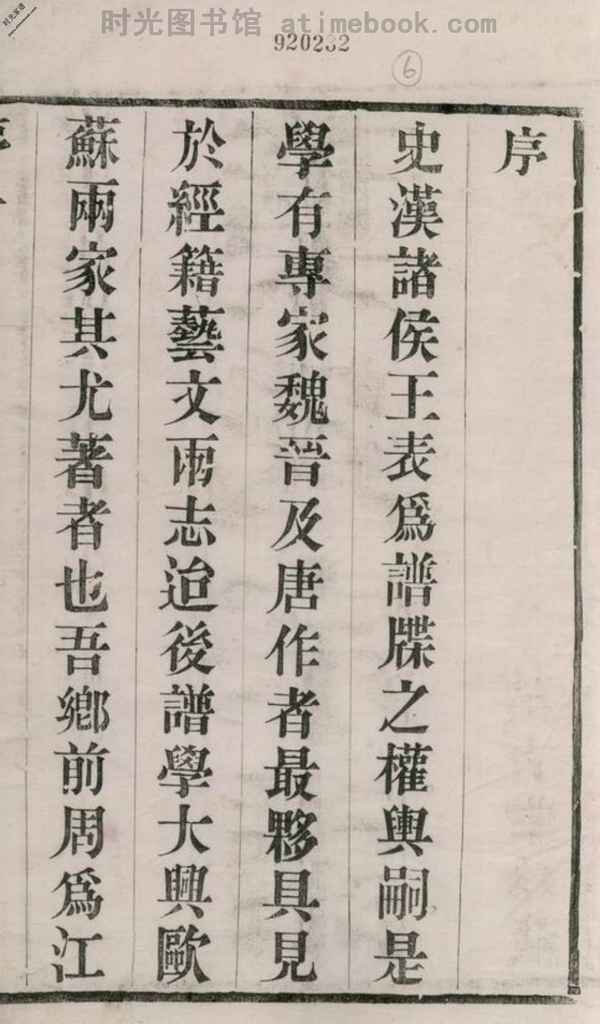 时光图书馆 atimebook.com
920232
6
序
史漢諸侯王表爲譜牒之權輿嗣是
學有專家魏晉及唐作者最夥具見
於經籍藝文兩志迨後譜學大興歐
蘇兩家其尤著者也吾鄉前周爲江